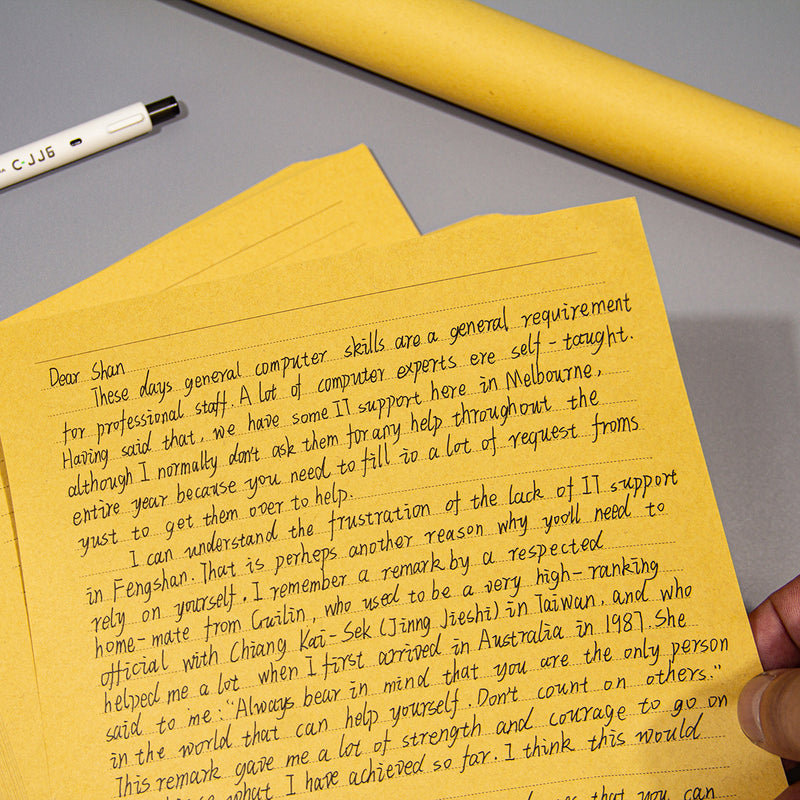 C·JJ6
Dear Shan
These days general computer skills are a general requirement
for professional staff. A lot of computer experts ere self-taught.
Having said that, we have some IT support here in Melbourne,
although I normally don't ask them for any help throughout the
entire year because you need to fill io a lot of request froms
yust to get them over to help.
I can understand the frustration of the lack of IT support
in Fengshan. That is perheps another reason why you'll need to
rely on yourself. I remember a remark by a respected
home-mate from Guilin, who used to be a very high-ranking
official with Chiang Kai-Sek (Jinng Jieshi) in Taiwan, and who
helped me a lot when I first arrived in Australia in 1987. She
said to me: "Always bear in mind that you are the only person
in the world that can help yourself. Don't count on others."
This remark gave me a lot of strength and courage to go on
what I have achieved so far. I think this would
that you can